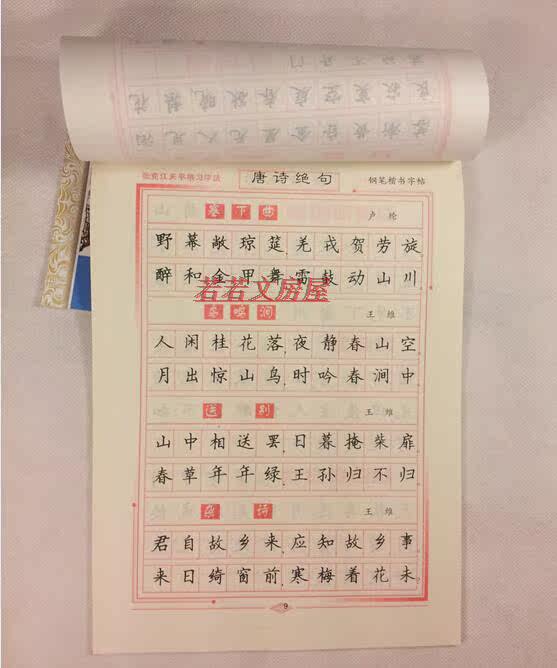 唐诗绝句 钢笔楷书字帖
塞下曲 卢纶
野幕敞琼筵,羌戎贺劳旋
醉和金甲舞,雷鼓动山川
若若文房屋
鸟鸣涧 王维
人闲桂花落,夜静春山空
月出惊山鸟,时吟春涧中
送别 王维
山中相送罢,日暮掩柴扉
春草年年绿,王孙归不归
杂诗 王维
君自故乡来,应知故乡事
来日绮窗前,寒梅着花未
9